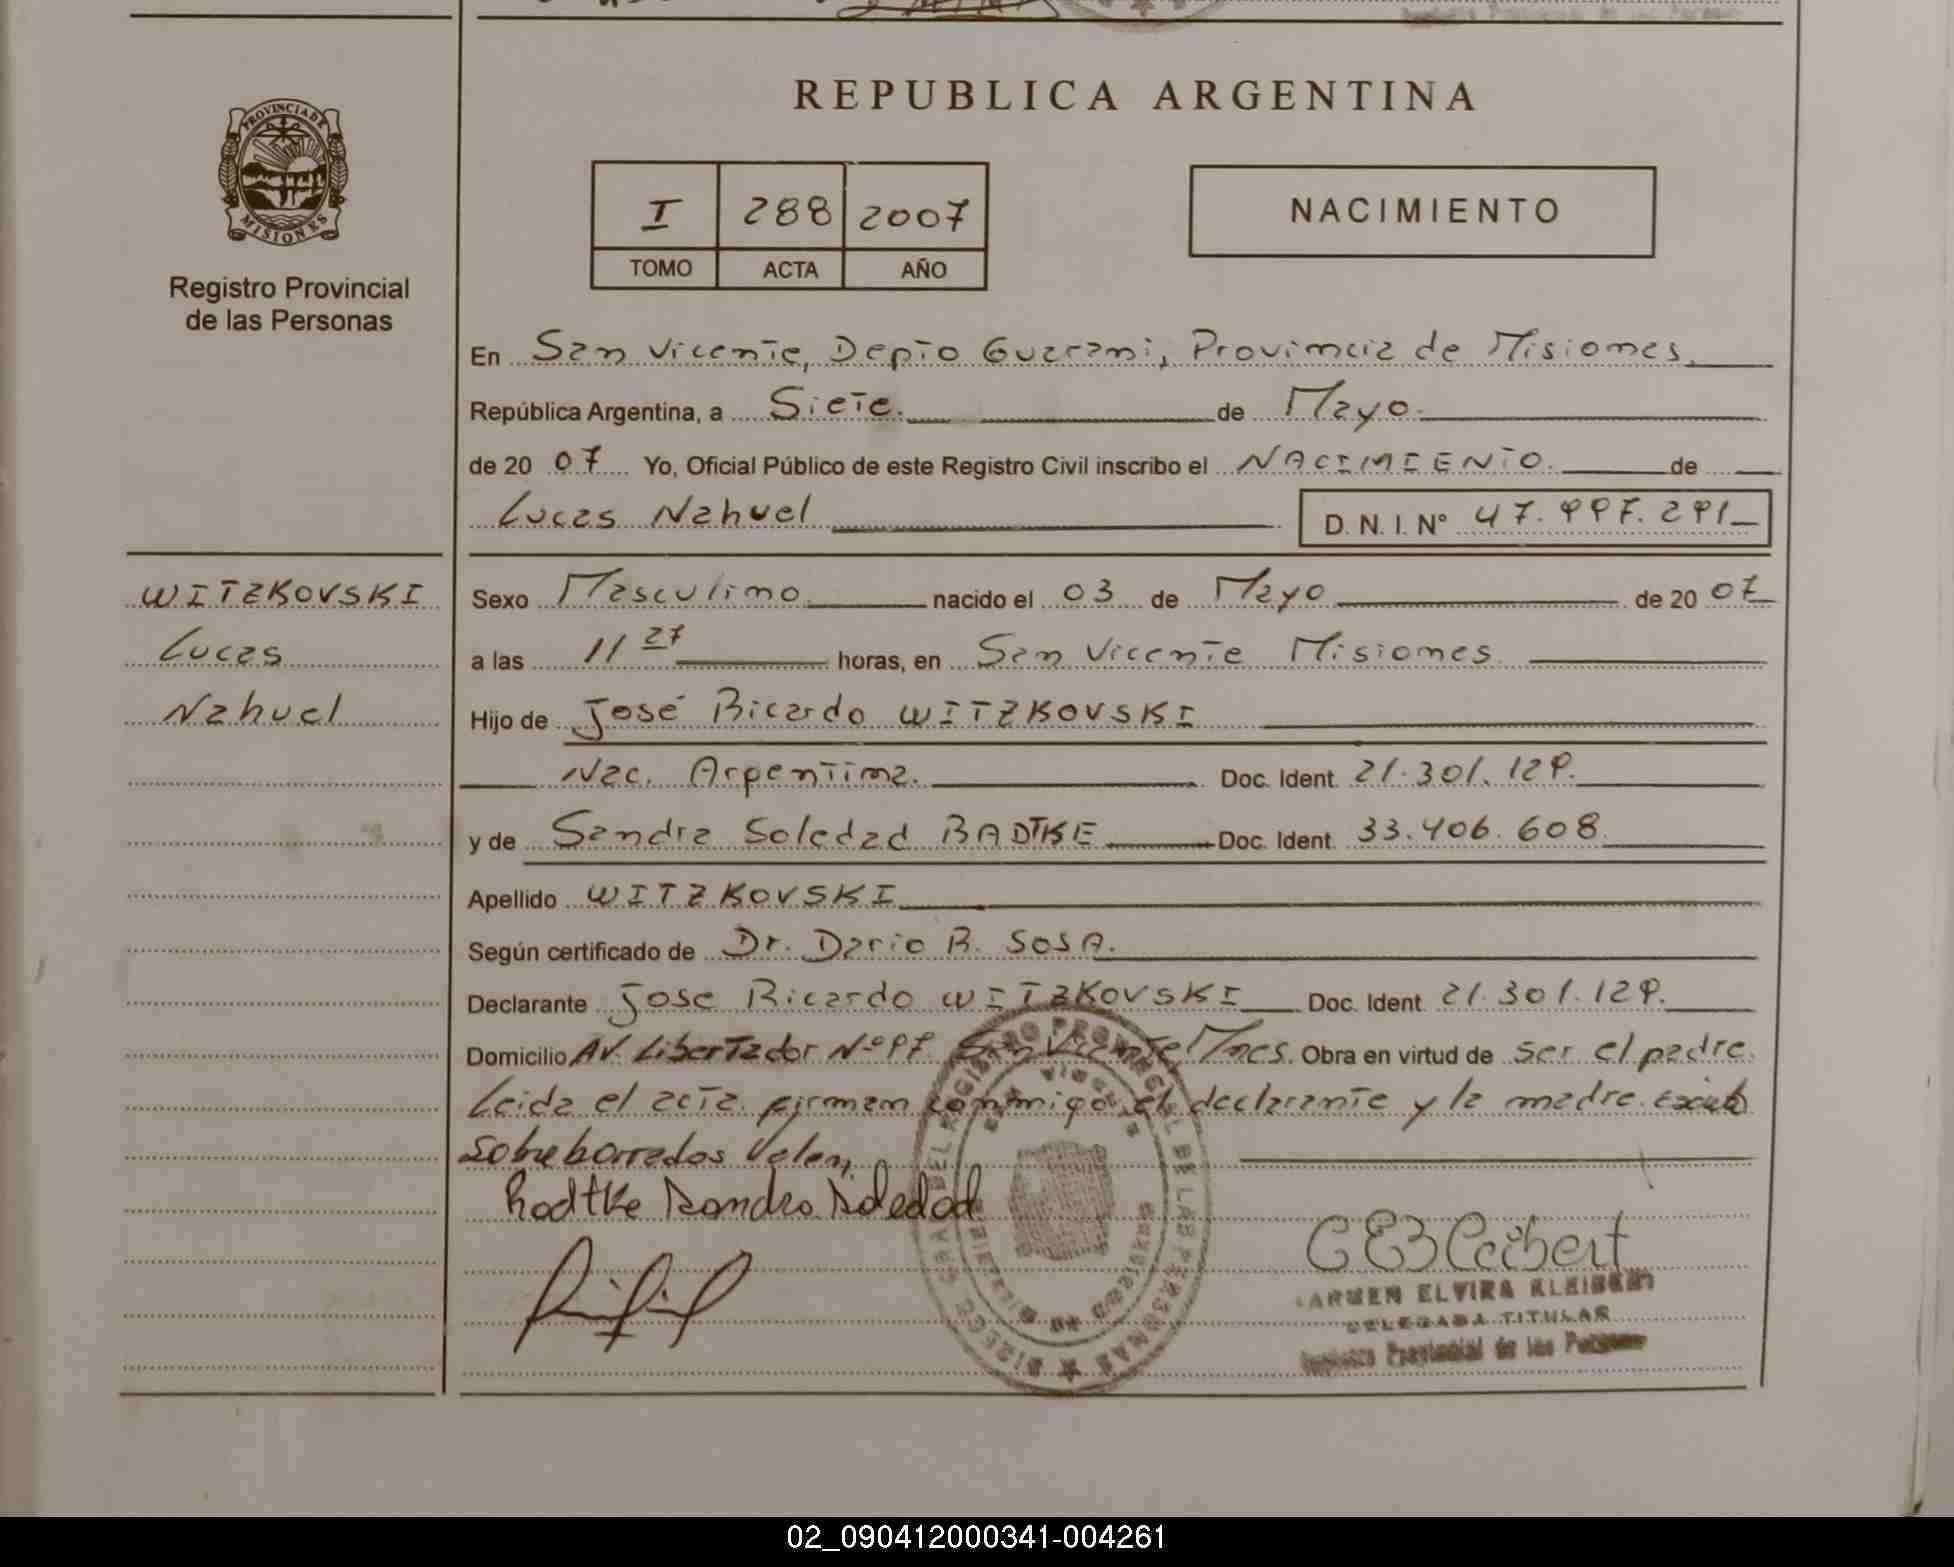 REPUBLICA ARGENTINA
PROVINCIA DE
MISIONES
Registro Provincial
de las Personas
I 288 2007
TOMO ACTA AÑO
NACIMIENTO
En San Vicente, Depto Guarani, Provincia de Misiones.
República Argentina, a Siete. de Mayo.
de 20 07 Yo, Oficial Público de este Registro Civil inscribo el NACIMIENTO. de
Lucas Nahuel D. N. I. Nº 47.997.291
WITZKOVSKI
Lucas
Nahuel
Sexo Masculino nacido el 03 de Mayo de 20 07
a las 11 27 horas, en San Vicente Misiones
Hijo de José Ricardo WITZKOVSKI
Nac. Argentina. Doc. Ident. 21.301.129.
y de Sandra Soledad RADTKE Doc. Ident. 33.406.608
Apellido WITZKOVSKI
Según certificado de Dr. Dario R. SOSA.
Declarante Jose Ricardo WITZKOVSKI Doc. Ident. 21.301.129.
Domicilio AV. Libertador Nº 97 San Vicente Mnes. Obra en virtud de ser el padre.
Leida el acta firman conmigo el declarante y la madre.
Sobreborrados Valen,
Radtke Sandra Soledad
CARMEN ELVIRA KLEIBERT
DELEGADA TITULAR
Registro Provincial de las Personas
02_090412000341-004261